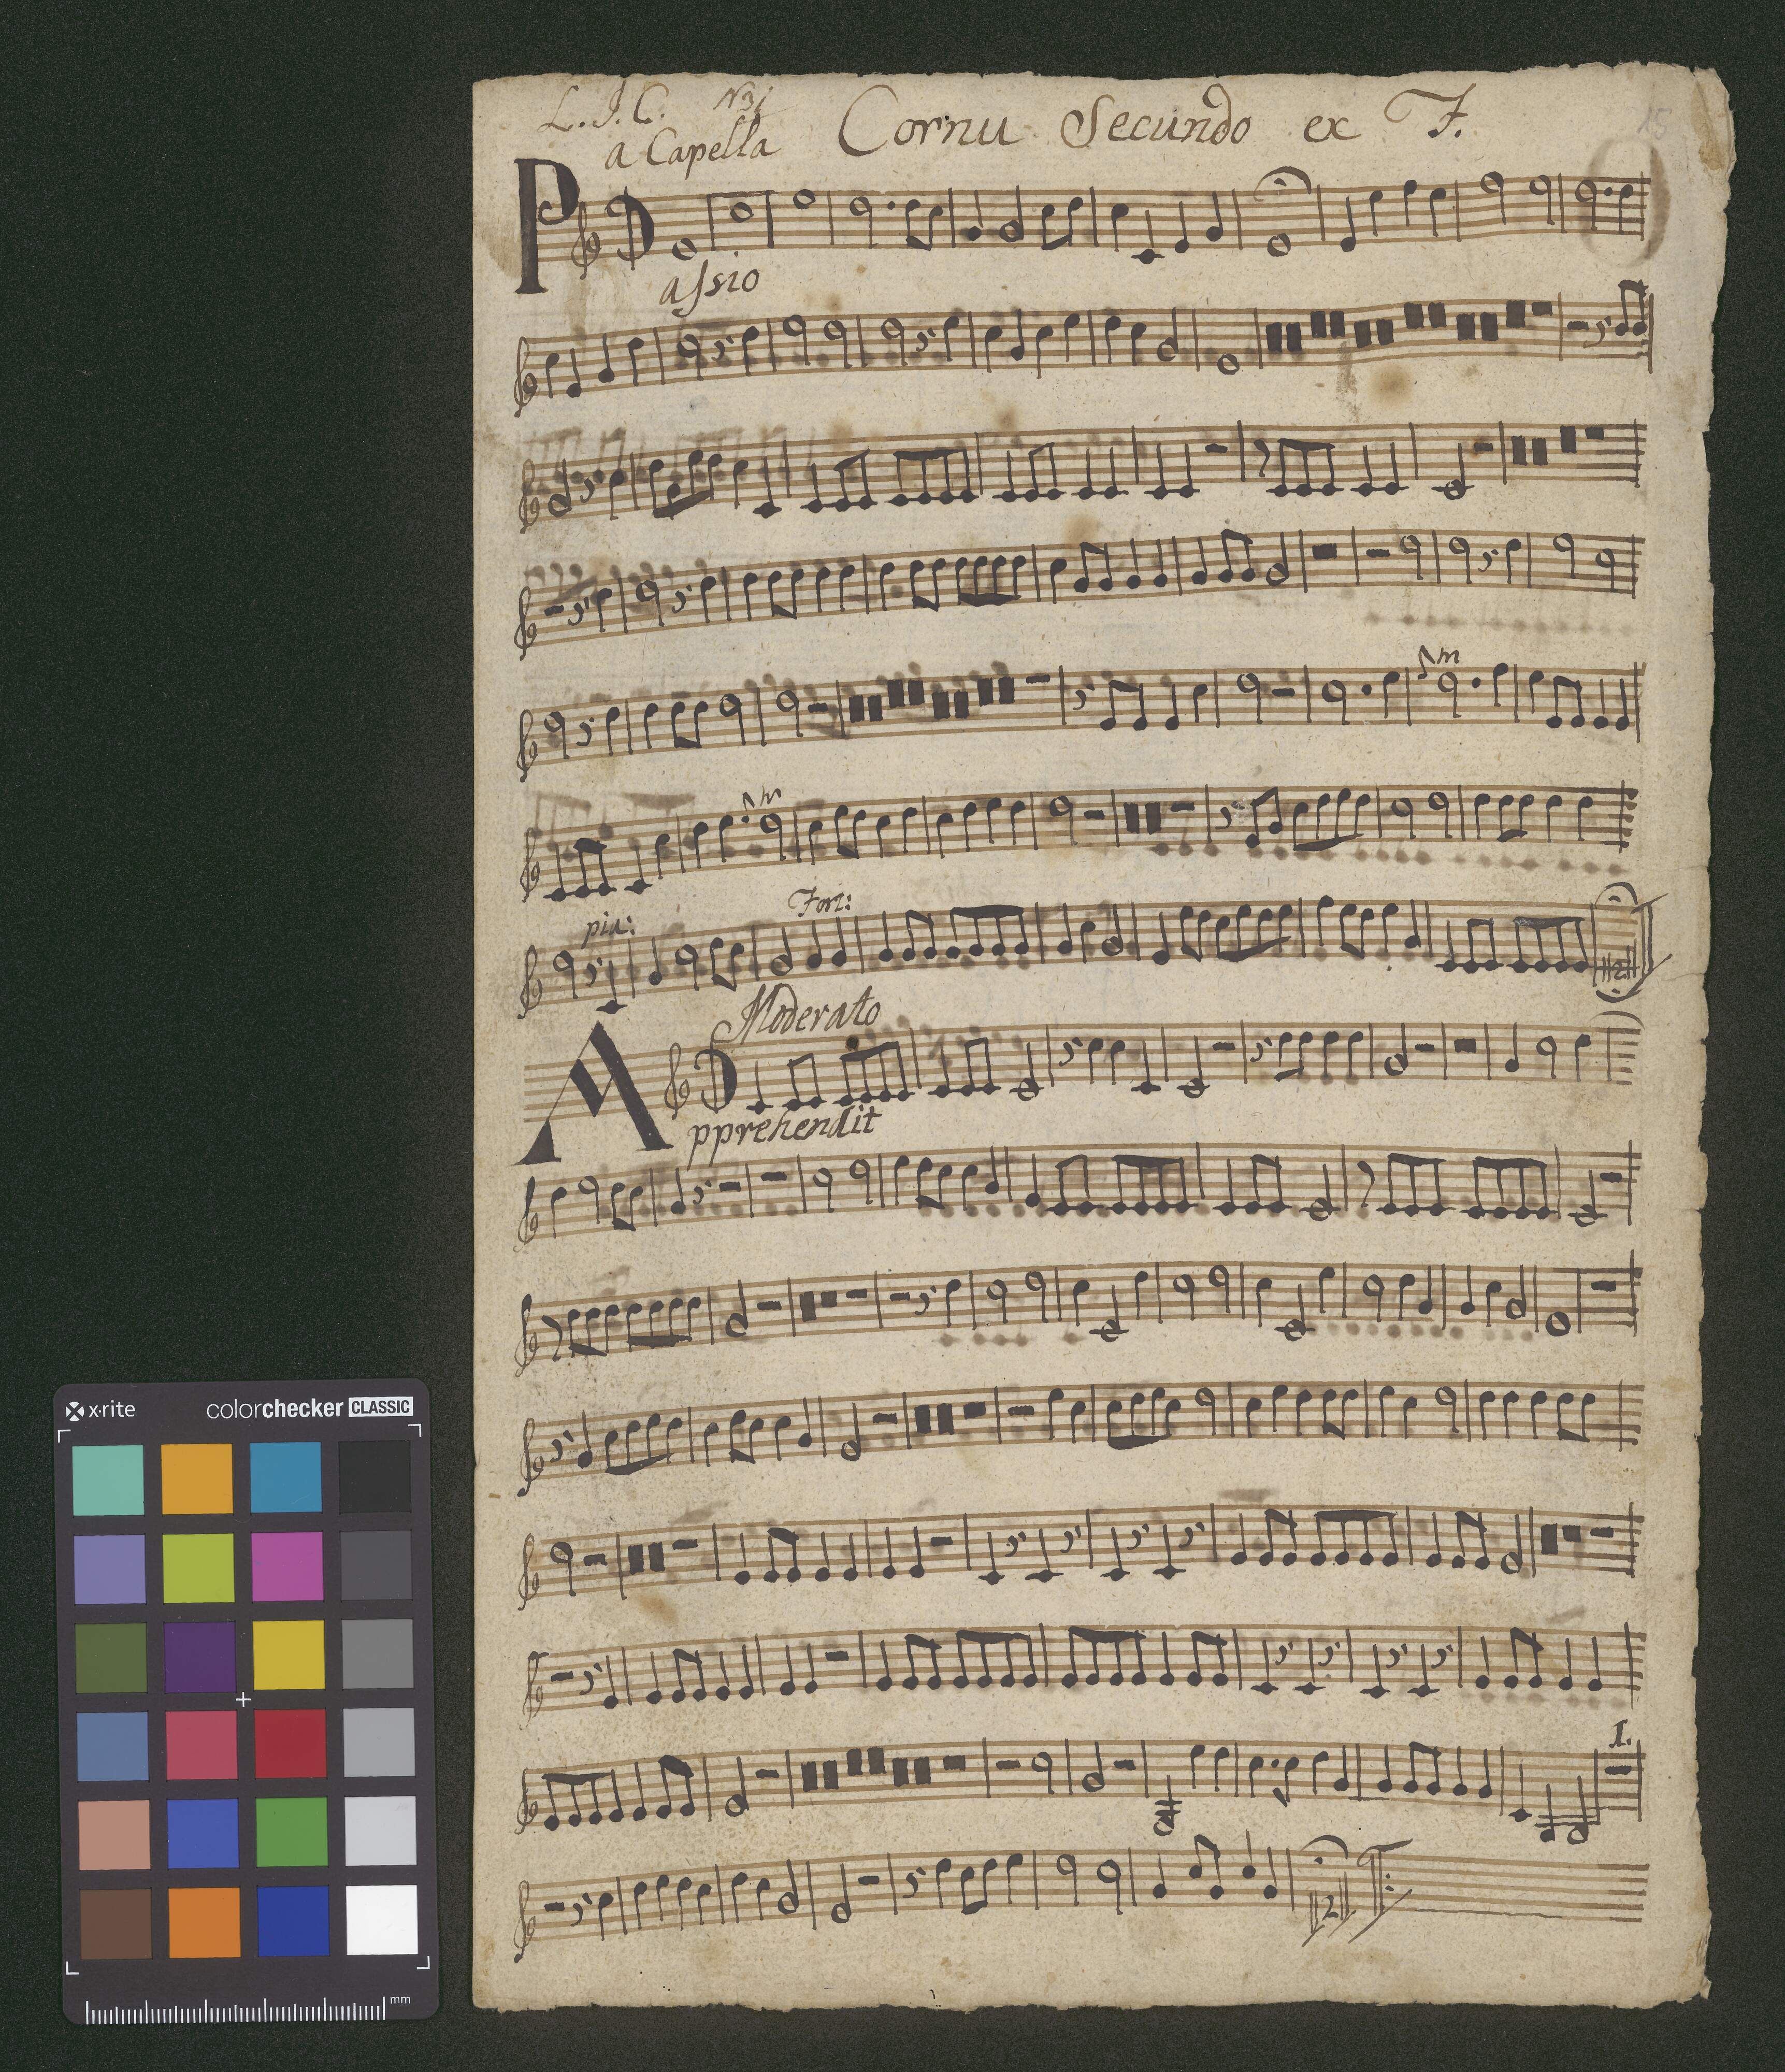 L. J. C. N31
Cornu Secundo ex F.
15
a Capella
Passio
pia:
Fort:
Moderato
Apprehendit
1.
x-rite colorchecker CLASSIC
mm